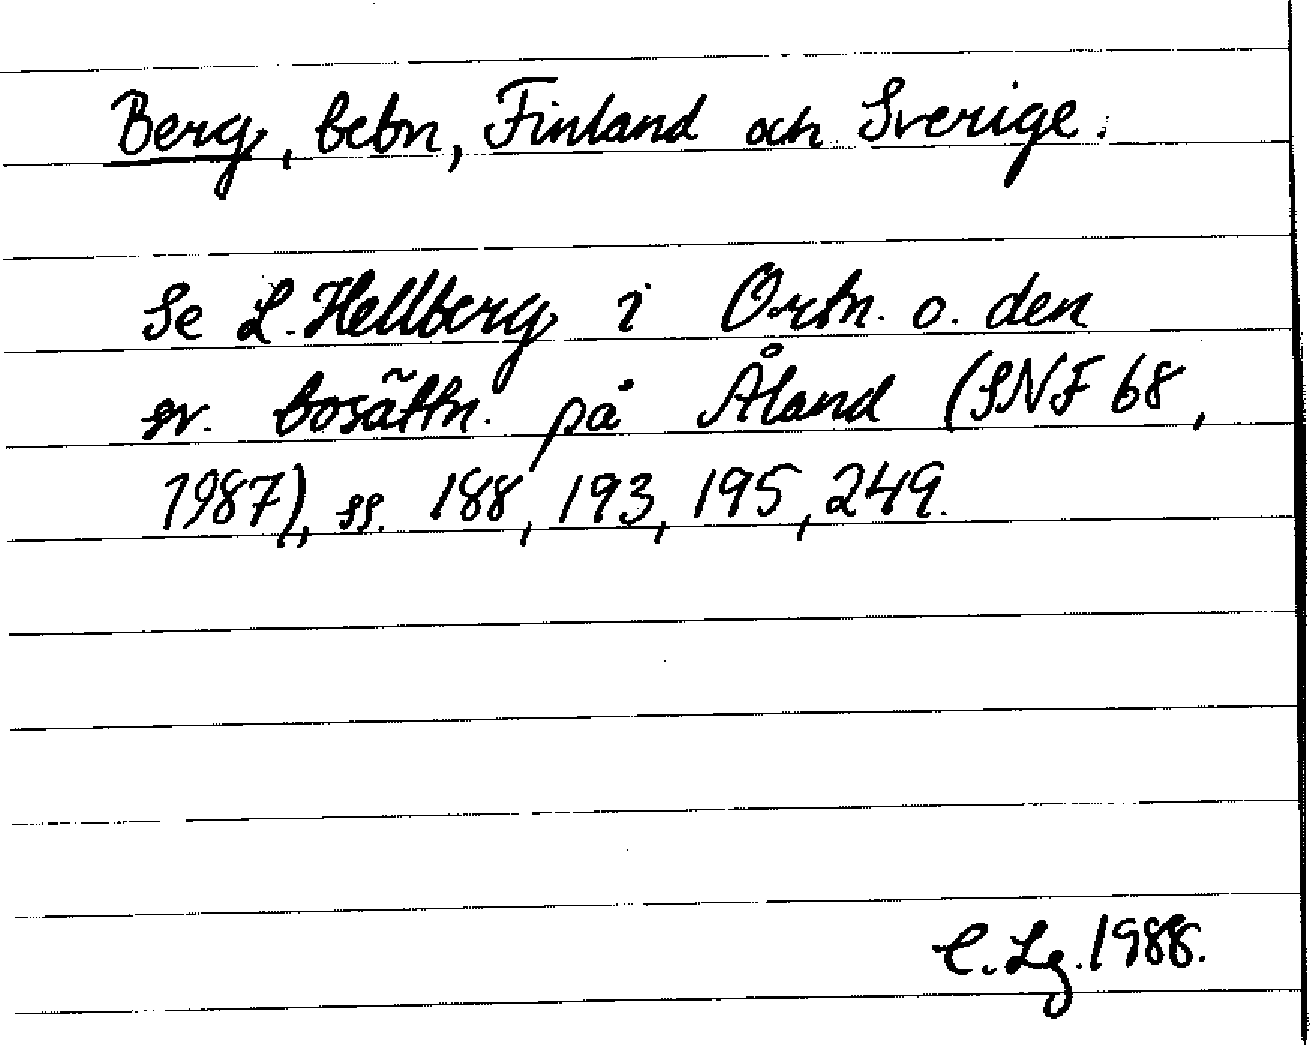 Berg, bebn, Finland och Sverige.
Se L. Hellberg i Ortn. o. den
sv. bosättn. på Åland (SNF 68,
1987), ss. 188, 193, 195, 249.
C. Lg. 1988.